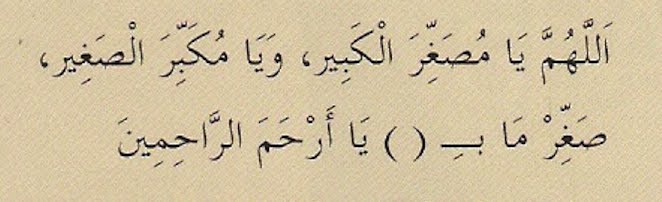 اَللَّهُمَّ يَا مُصَغِّرَ الْكَبِيرِ، وَيَا مُكَبِّرَ الْصَغِيرِ،
صَغِّرْ مَا بِـ ( ) يَا أَرْحَمَ الرَّاحِمِينَ